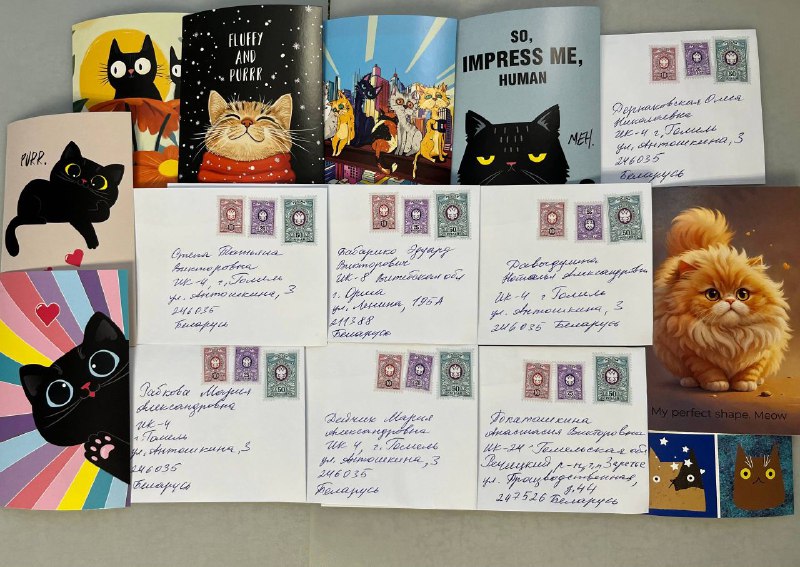 FLUFFY
AND
PURRR
SO,
IMPRESS ME,
HUMAN
MEH.
Дернаковская Олеся
Николаевна
ИК-4 г. Гомель
ул. Антошкина, 3
246035
Беларусь
PURR.
Стега Татьяна
Викторовна
ИК-4, г. Гомель
ул. Антошкина, 3
246035
Беларусь
Бабарико Эдуард
Викторович
ИК-8 Витебская обл
г. Орша
ул. Ленина, 195А
211388
Беларусь
Давыдулина
Наталья Александровна
ИК-4 г. Гомель
ул. Антошкина, 3
246035 Беларусь
Рабкова Мария
Александровна
ИК-4
г. Гомель
ул. Антошкина, 3
246035
Беларусь
Дейчик Мария
Александровна
ИК 4, г. Гомель
ул. Антошкина, 3
246035
Беларусь
Анастасия Викторовна
ИК-24 Гомельская обл
Речицкий р-н, г.п. Заречье
ул. Производственная,
д. 44
247526 Беларусь
My perfect shape. Meow